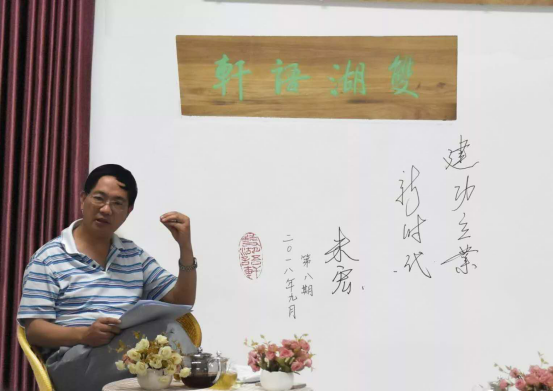 雙湖語軒
建功立業
新时代
第八期
二〇一八年九月